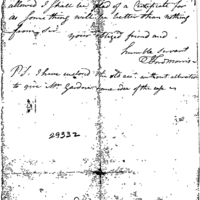 allowed I shall be glad of a Certificate for
as something will be better than nothing
from Sir
your obliged friend and
humble servant
P.S. I have enclosed the old acc. without alteration
to give Mr. Gardner some idea of the
29332